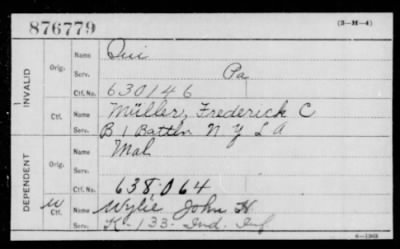 876779 (3-M-4)
INVALID
Orig. Name Qui
Serv. Pa
Ctf. No. 630146
Ctf. Name Müller, Frederick C
Serv. B 1 Battln N Y L A
DEPENDENT
Orig. Name Mah
Serv.
Ctf. No. 638,064
W Ctf. Name Wylie John H
Serv. K - 133 - Ind. Inf.
6-1363